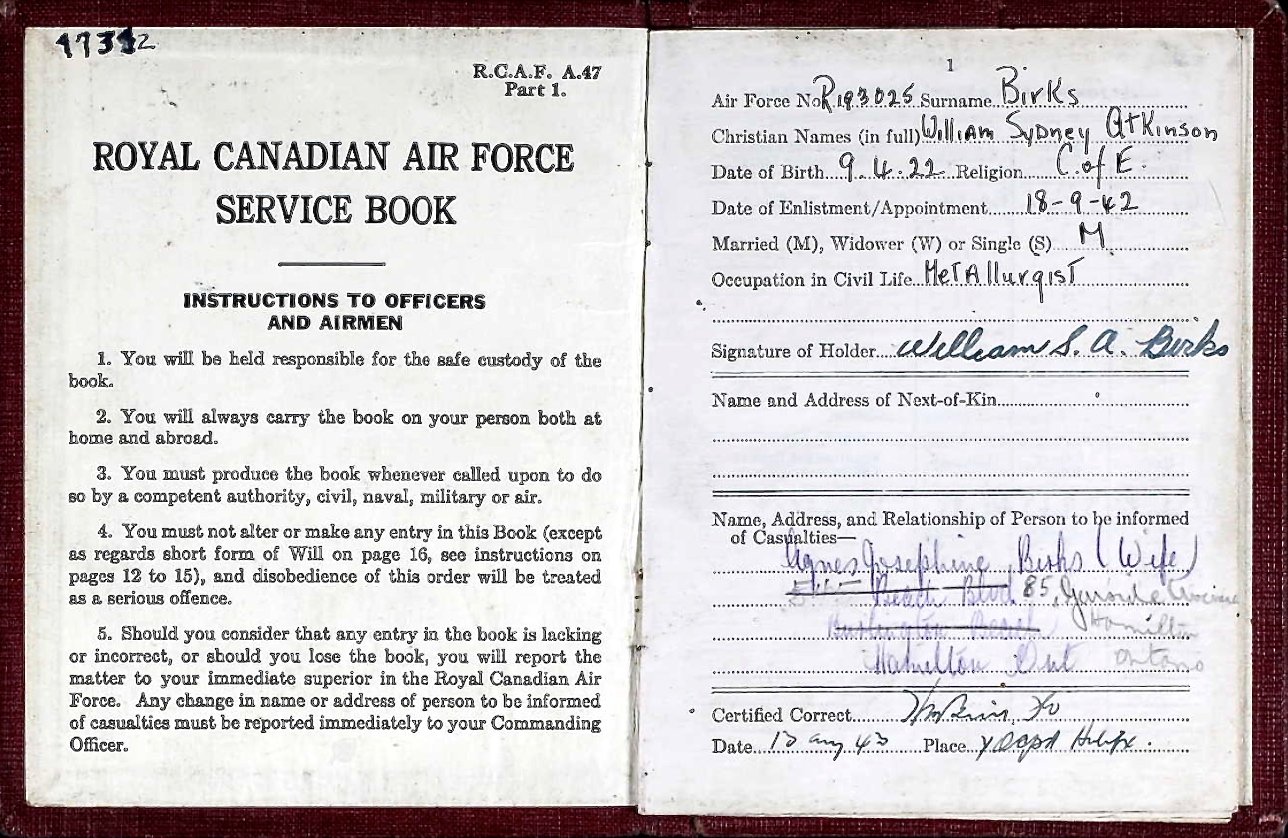 R.C.A.F. A.47
Part 1.
ROYAL CANADIAN AIR FORCE
SERVICE BOOK
INSTRUCTIONS TO OFFICERS
AND AIRMEN
1. You will be held responsible for the safe custody of the
book.
2. You will always carry the book on your person both at
home and abroad.
3. You must produce the book whenever called upon to do
so by a competent authority, civil, naval, military or air.
4. You must not alter or make any entry in this Book (except
as regards short form of Will on page 16, see instructions on
pages 12 to 15), and disobedience of this order will be treated
as a serious offence.
5. Should you consider that any entry in the book is lacking
or incorrect, or should you lose the book, you will report the
matter to your immediate superior in the Royal Canadian Air
Force. Any change in name or address of person to be informed
of casualties must be reported immediately to your Commanding
Officer.
1
Air Force No. R193025 Surname Birks
Christian Names (in full) William Sydney Atkinson
Date of Birth 9.4.22 Religion C. of E.
Date of Enlistment/Appointment 18-9-42
Married (M), Widower (W) or Single (S) M
Occupation in Civil Life Metallurgist
Signature of Holder William S. A. Birks
Name and Address of Next-of-Kin
Name, Address, and Relationship of Person to be informed
of Casualties—
Agnes Josephine Birks (Wife)
Beach Blvd. 85,
Burlington Beach Hamilton
Hamilton Ont Ontario
Certified Correct
Date 13 Aug 43 Place